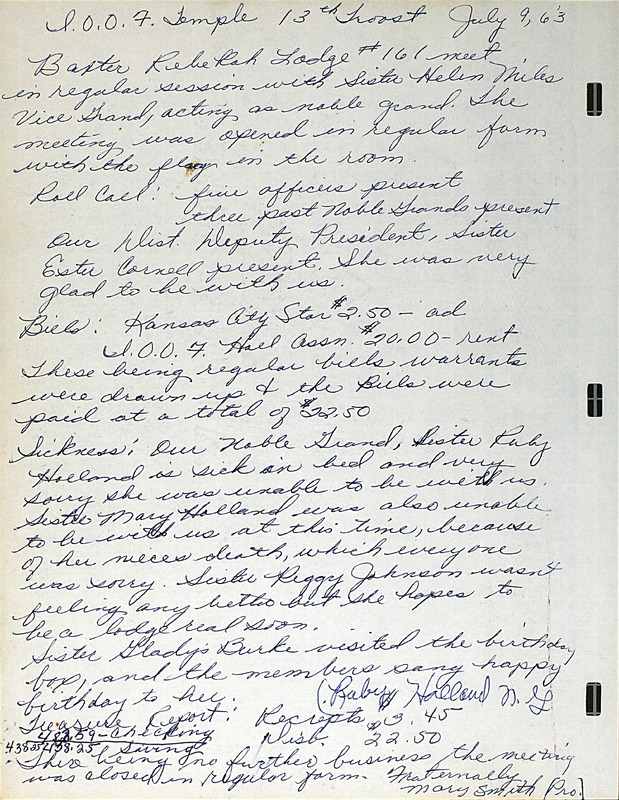 I.O.O.F. Temple 13th Troost July 9, 63
Baxter Rebekah Lodge #161 meet
in regular session with Sister Helen Miles
Vice Grand, acting as noble grand. The
meeting was opened in regular form
with the flag in the room.
Roll Call: five officers present
three past Noble Grands present
Our Dist. Deputy President, Sister
Ester Cornell present. She was very
glad to be with us.
Bills: Kansas City Star $2.50 - ad
I.O.O.F. Hall Assn. $20.00 - rent
These being regular bills warrants
were drawn up & the Bills were
paid at a total of $22.50
Sickness: Our Noble Grand, Sister Ruby
Holland is sick in bed and very
sorry she was unable to be with us.
Sister Mary Holland was also unable
to be with us at this time, because
of her nieces death, which everyone
was sorry. Sister Peggy Johnson wasn't
feeling any better but she hopes to
be a lodge real soon.
Sister Gladys Burke visited the birthday
box, and the members sang happy
birthday to her. (Ruby Holland N. G
Treasurer Report: Receipts 3.45
59 - Checking Disb. 22.50
438.25 438.25 Saving
There being no further business the meeting
was closed in regular form. Fraternally
Mary Smith Pro.)